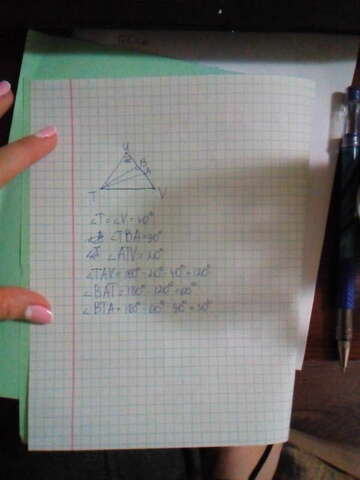 U
B
A
T
V
∠T = ∠V = 40°
∠TBA = 90°
∠ATV = 20°
∠TAV = 180° - 20° - 40° = 120°
∠BAT = 180° - 120° = 60°
∠BTA = 180° - 60° - 90° = 30°